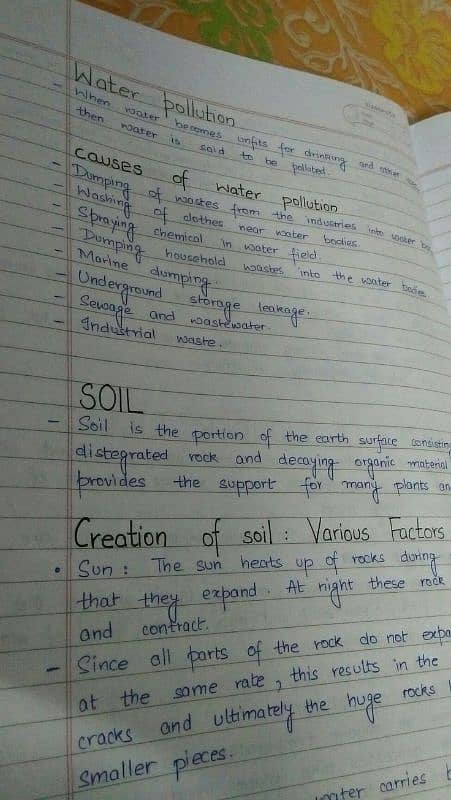 Water pollution
- When water becomes unfits for drinking and other
then water is said to be polluted.
causes of water pollution
- Dumping of wastes from the industries into water
- Washing of clothes near water bodies.
- Spraying chemical in water field.
- Dumping household wastes into the water bodies
- Marine dumping.
- Underground storage leakage.
- Sewage and wastewater.
- Industrial waste.
SOIL
- Soil is the portion of the earth surface consisting
distegrated rock and decaying organic material
provides the support for many plants an
Creation of soil : Various Factors
• Sun : The sun heats up of rocks during
that they expand. At night these rock
and contract.
- Since all parts of the rock do not expa
at the same rate, this results in the
cracks and ultimately the huge rocks
smaller pieces.
water carries